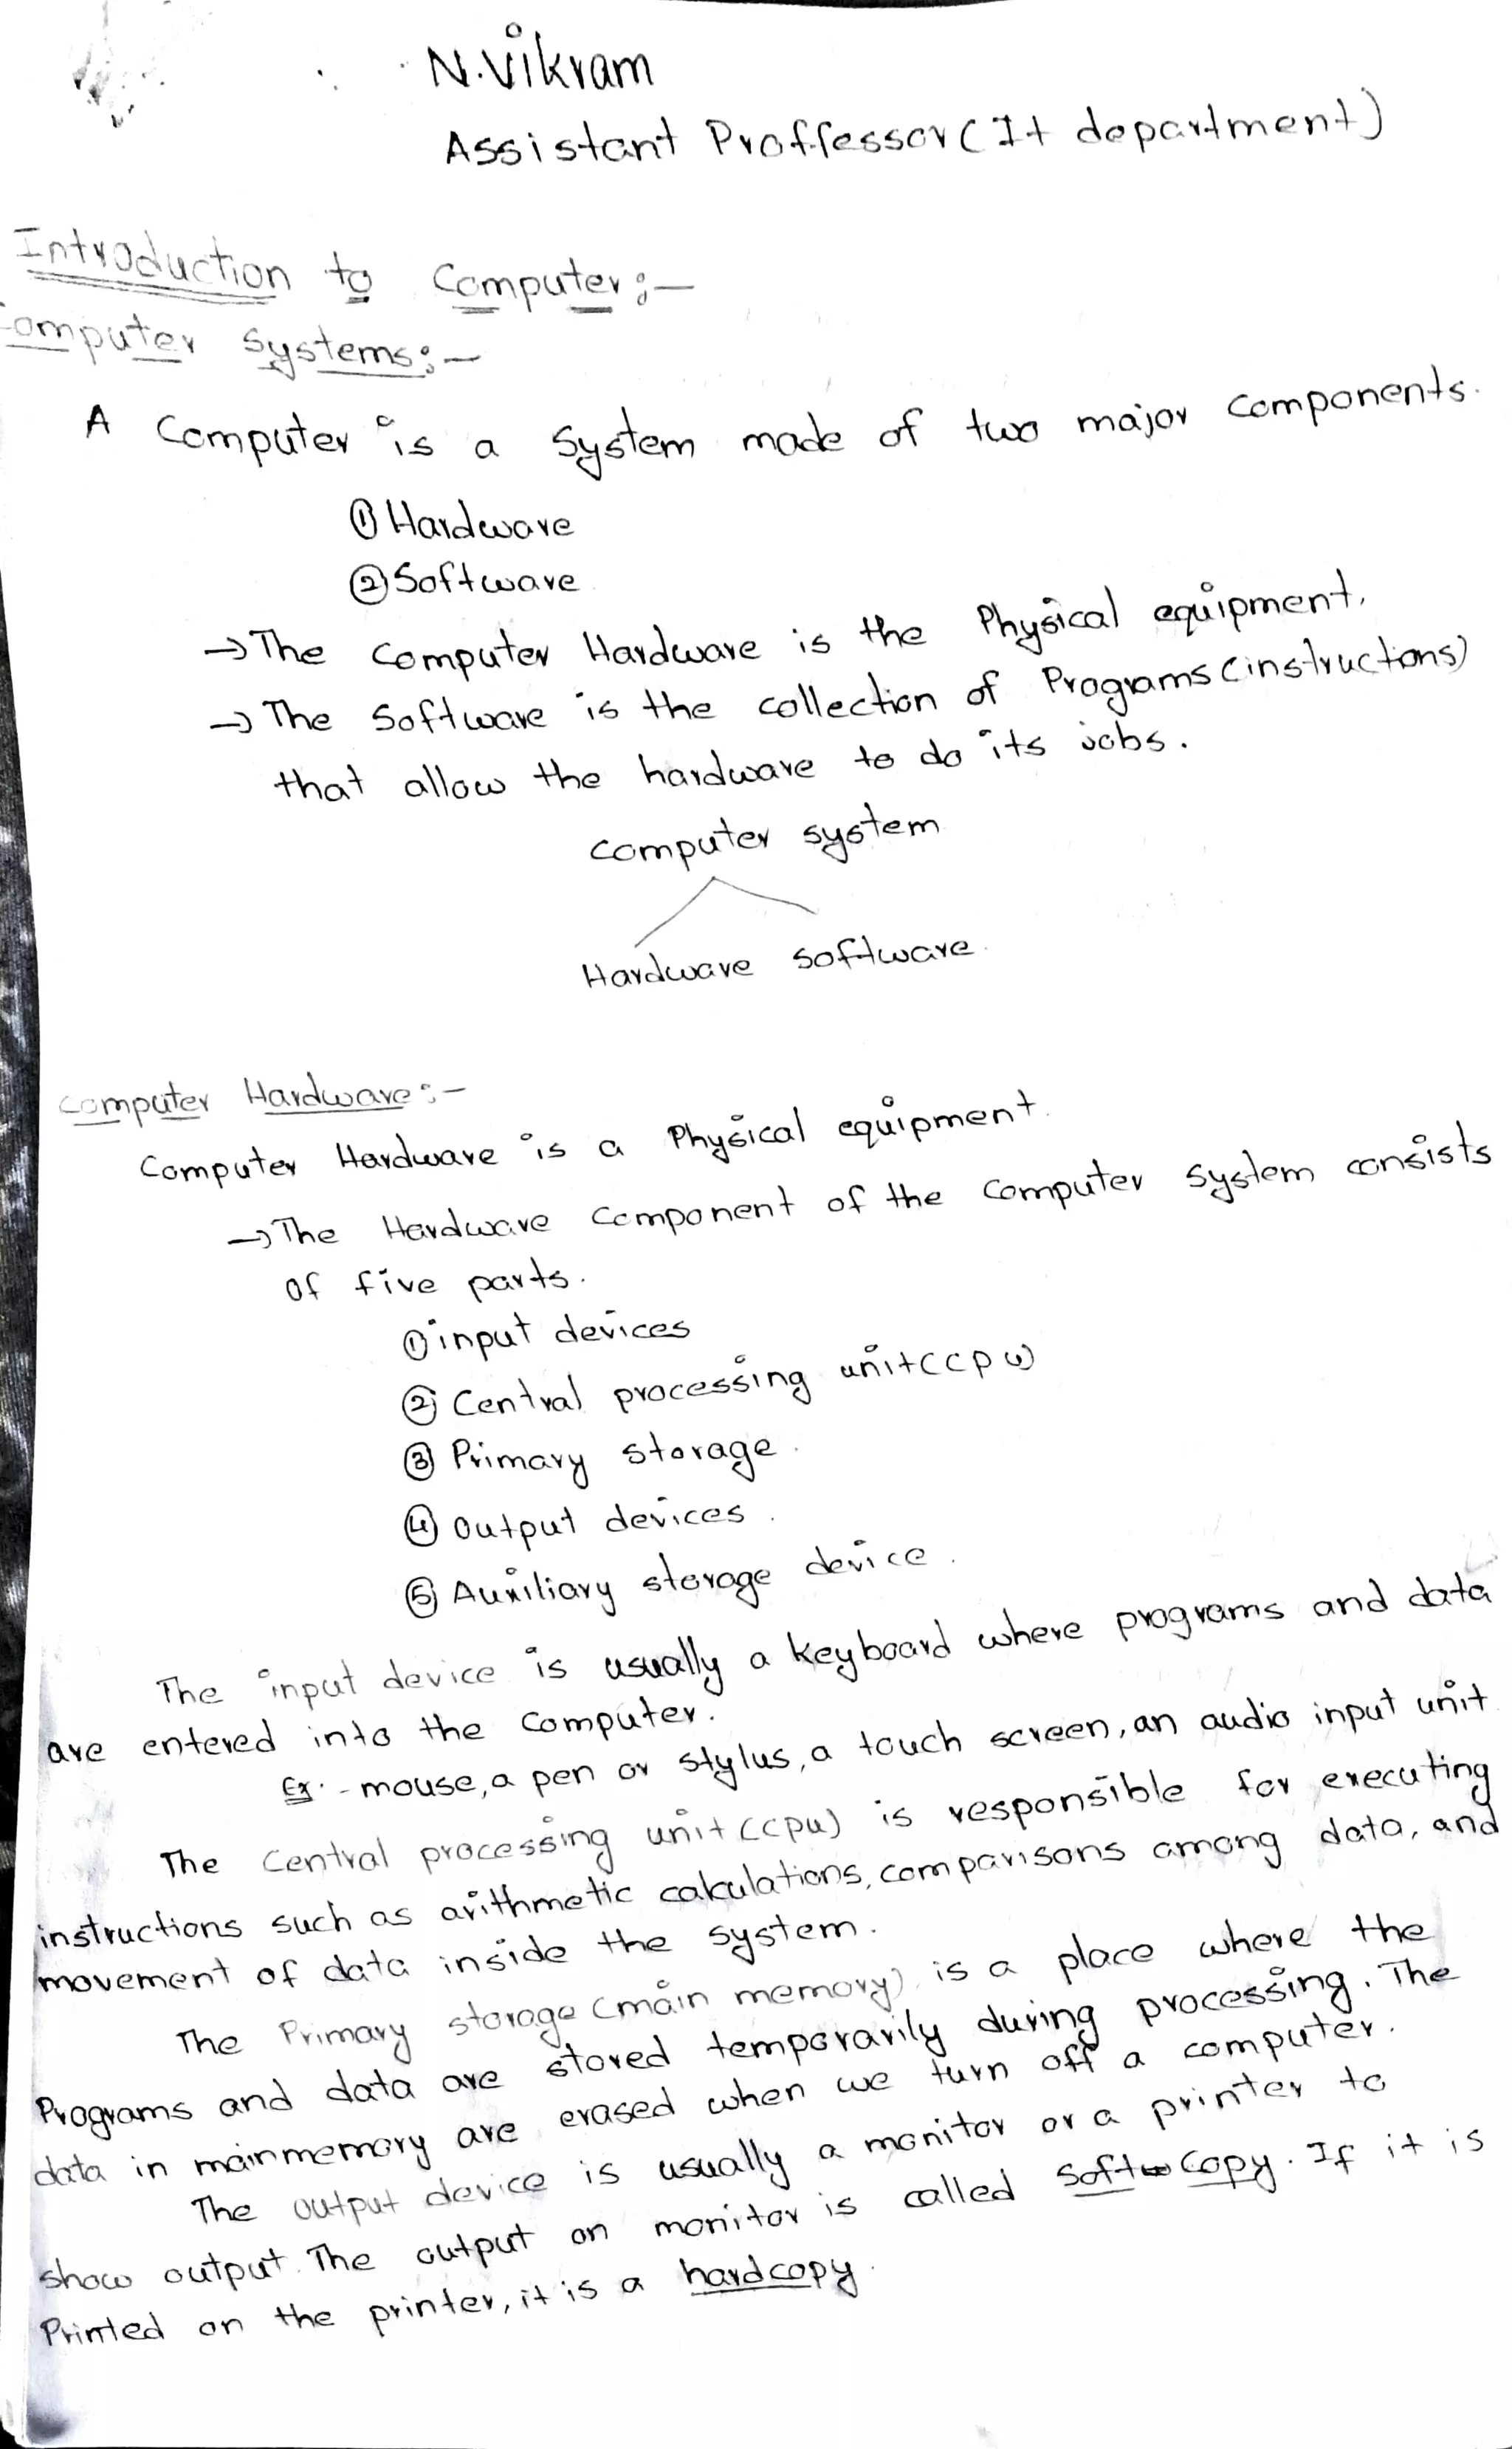 N.Vikram
Assistant Proffessor(It department)
Introduction to Computer:-
Computer Systems:-
A Computer is a System made of two major components.
① Hardware
② Software
→ The Computer Hardware is the Physical equipment.
→ The Software is the collection of Programs (instructions)
that allow the hardware to do its jobs.
computer system
Hardware software
computer Hardware:-
Computer Hardware is a Physical equipment.
→ The Hardware Component of the Computer System consists
of five parts.
① input devices
② Central processing unit(cpu)
③ Primary storage.
④ output devices.
⑤ Auxiliary storage device.
The input device is usually a keyboard where programs and data
are entered into the computer.
Ex:- mouse, a pen or stylus, a touch screen, an audio input unit
The Central processing unit (cpu) is responsible for executing
instructions such as arithmetic calculations, comparisons among data, and
movement of data inside the system.
The Primary storage (main memory) is a place where the
Programs and data are stored temporarily during processing. The
data in main memory are erased when we turn off a computer.
The output device is usually a monitor or a printer to
show output. The output on monitor is called Soft Copy. If it is
Printed on the printer, it is a hardcopy.